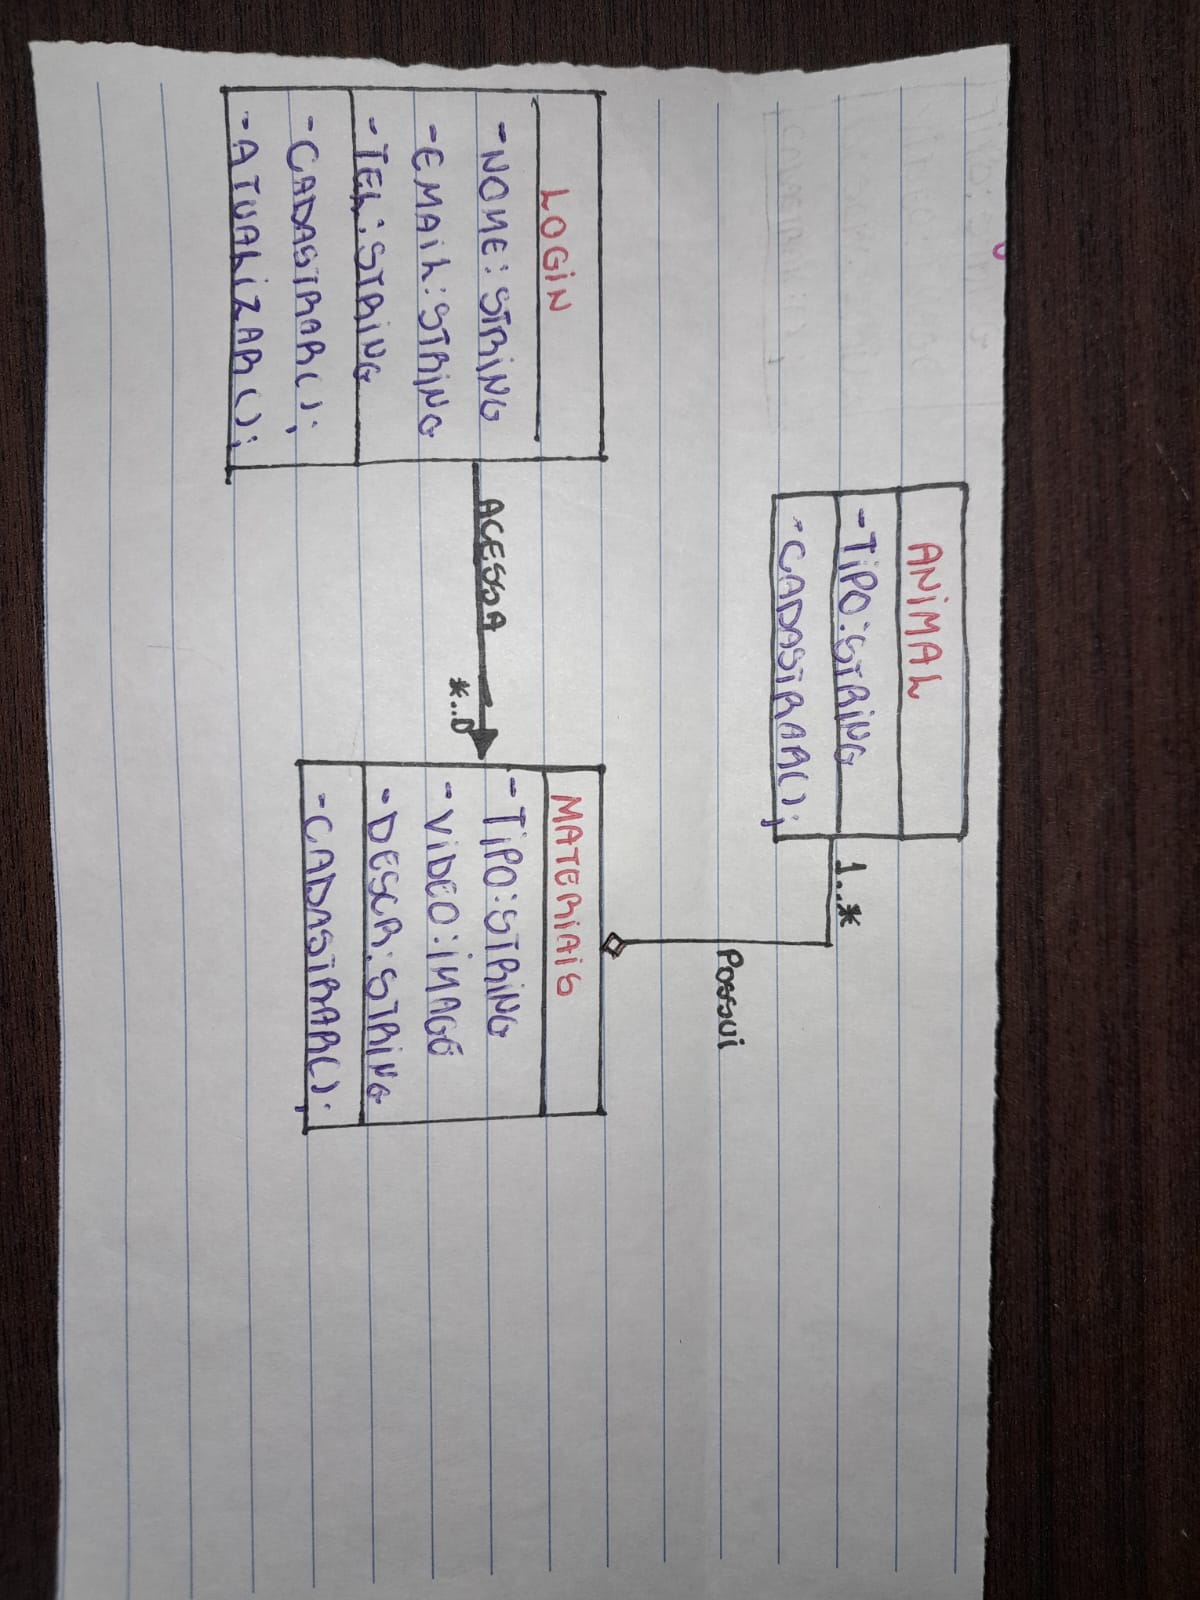 ANiMAL
-TiPO:STRiNG
-CADASTRAR();
1..*
POSSUi
LOGiN
-NOME:STRiNG
-EMAiL:STRiNG
-TEL:STRiNG
-CADASTRAR();
-ATUALiZAR();
ACESSA
*..0
MATERiAiS
-TiPO:STRiNG
-ViDEO:iMAGE
-DESCR:STRiNG
-CADASTRAR();